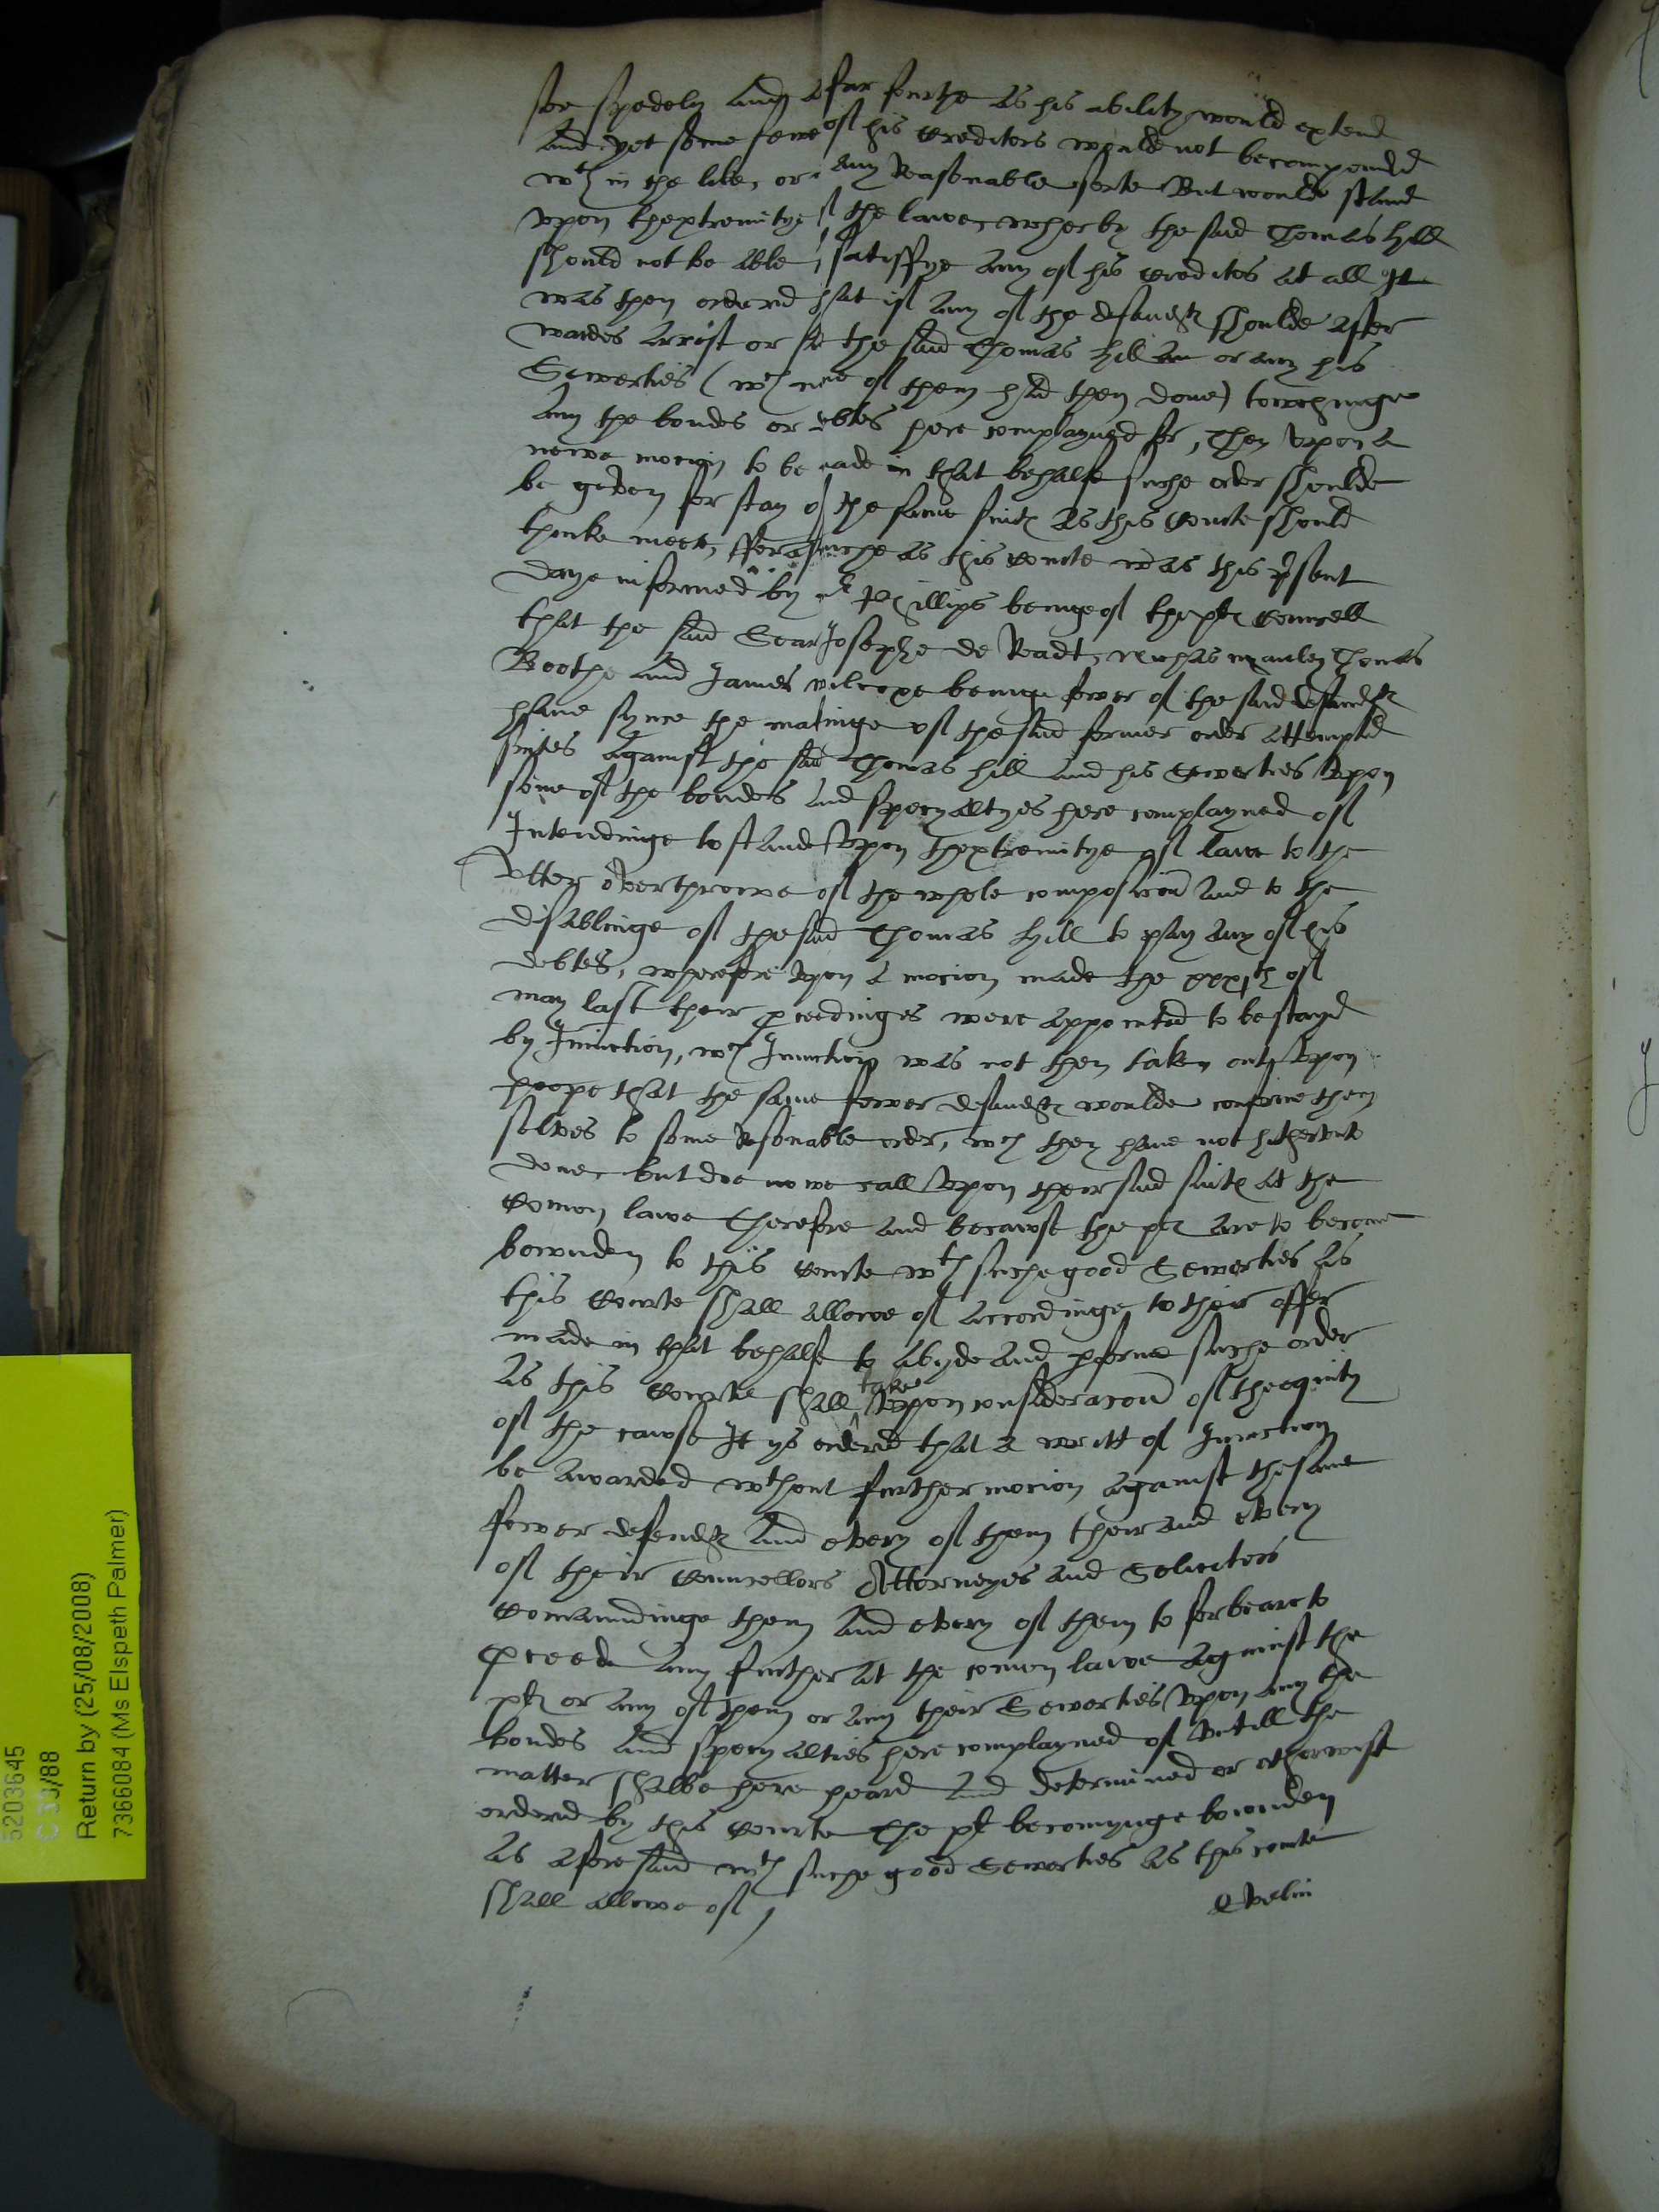 soe spedely and as far fourthe as his ability would extend
And yet some fewe of his Creditors woulde not becompounded
wth in the like, or any Reasonable sorte But woulde stand
vpon thextremitye of the lawe, wherby the said Thomas Hill
should not be able to satisffye any of his Creditors at all It
was then ordered that if any of the defendts shoulde after
wardes arrest or sue the said Thomas Hill or any his
Sewerties (wch none of them had then done) towchinge
any the bondes or debtes here complayned for, Then vpon a
newe mocion to be made in that behalfe suche order shoulde
be geven for stay of the same suits as this Courte should
thinke meete, fforasmuche as this Courte was this psent
daye informed by mr Phillips beinge of the plts Councell
that the said Josephe de Thomas
Boothe and James wilcoxe beinge fower of the said defendts
have synce the makinge of the said former order attempted
suites against the said Thomas Hill and his Sewerties vpon
some of the bondes and specyaltyes here complayned of
Intendinge to stande vpon thextremitye of lawe to the
vtter overthrowe of the whole composicion and to the
disablinge of the said Thomas Hill to pay any of his
debtes, wherefore vpon a mocion made the xxxth of
may last their pceedinges were appointed to be stayed
by Iniunction, wch Iniunction was not then taken out vpon
hoope that the same fower defendts woulde conforme them
selves to some resonable order, wch they have not hitherunto
done, but doe nowe call vpon their said suits at the
Comon lawe Therefore and becawse the plts are to become
bownden to this Courte wth suche good Sewerties as
this Courte shall allowe of accordinge to their offer
made in that behalfe to abyde and pforme suche order
as this Courte shall take vpon consideracion of the equity
of the cawse It ys ordered that a writt of Iniunction
be awarded wthout further mocion against the same
fower defendts And every of them their and every
of their Councellors Attorneyes and Soliciters
Comaundinge them and every of them to forbeare to
pceede any further at the comon lawe against the
plts or any of them or any their Sewerties vpon any the
bondes and specyalties here complayned of vntill the
matter shalbe here heard and determined or otherwise
ordered by this Courte The plts becomynge bownden
as aforesaid wth suche good Sewerties as this courte
shall allowe of
Evelin
5203645
C 33/88
Return by (25/08/2008)
7366084 (Ms Elspeth Palmer)